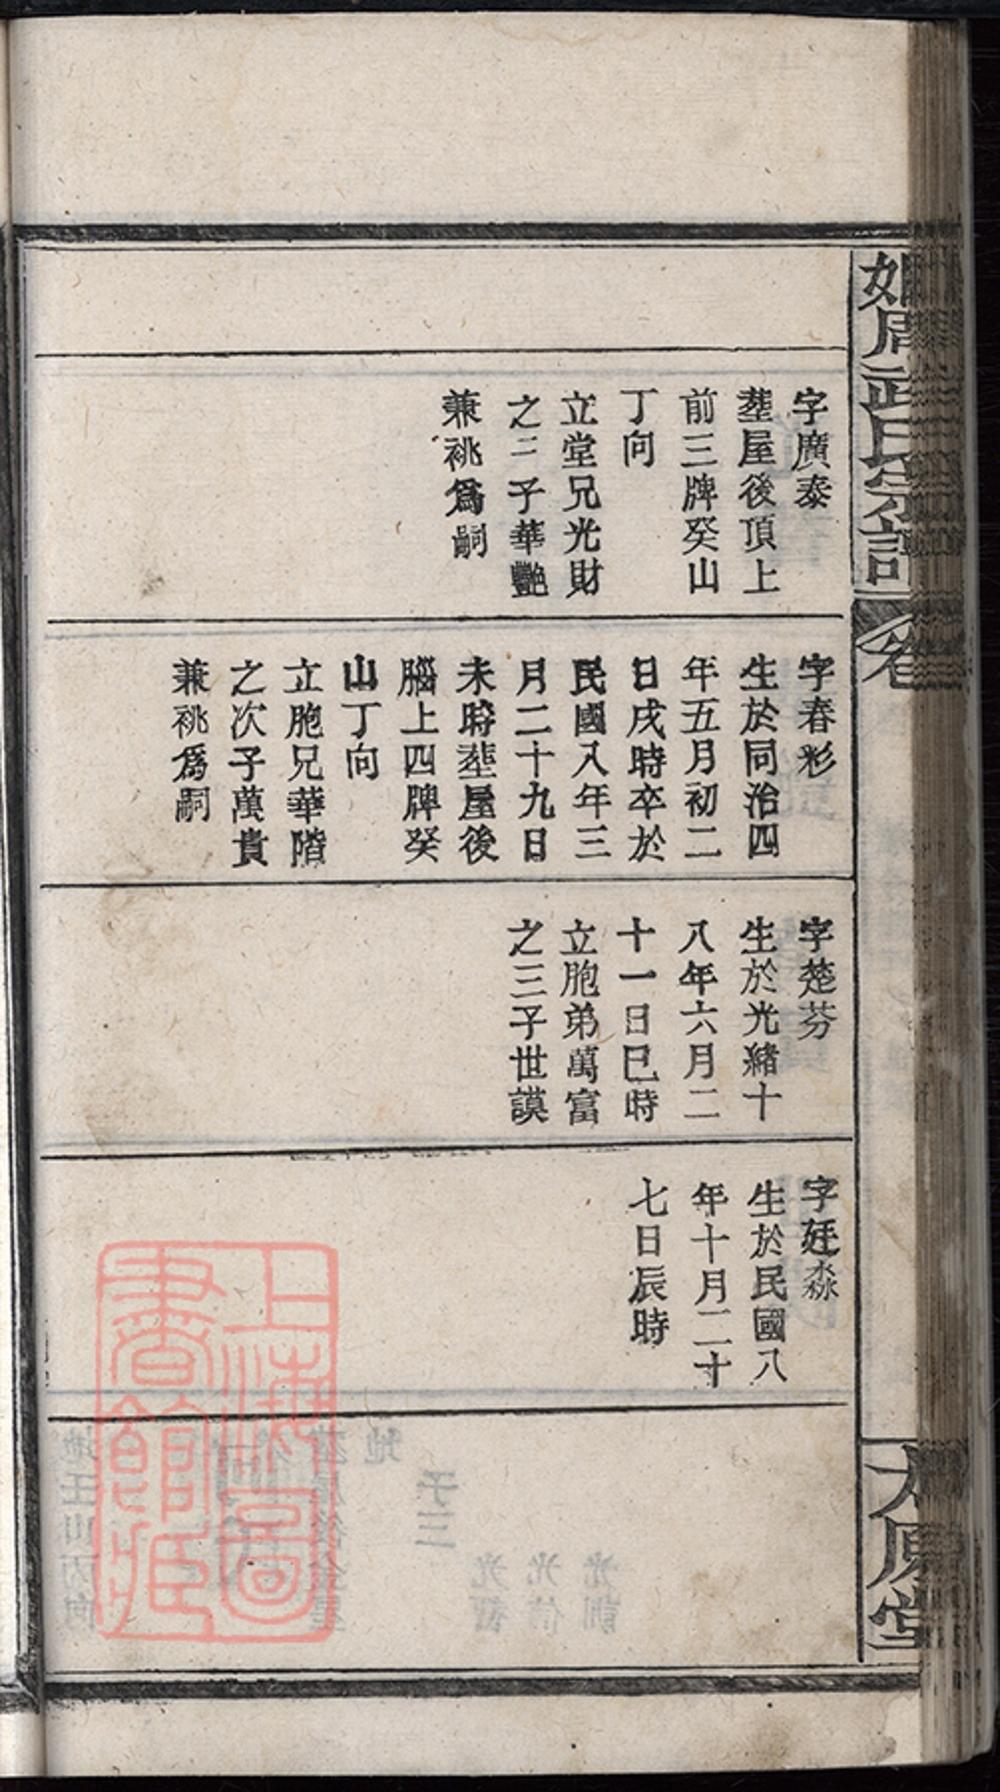 武氏宗譜
卷
太原堂
字廣泰
塟屋後頂上
前三牌癸山
丁向
立堂兄光財
之二子華艷
兼祧爲嗣
字春彩
生於同治四
年五月初二
日戌時卒於
民國八年三
月二十九日
未時塟屋後
腦上四牌癸
山丁向
立胞兄華階
之次子萬貴
兼祧爲嗣
字楚芬
生於光緒十
八年六月二
十一日巳時
立胞弟萬富
之三子世謨
字廷森
生於民國八
年十月二十
七日辰時
上海圖
書館藏